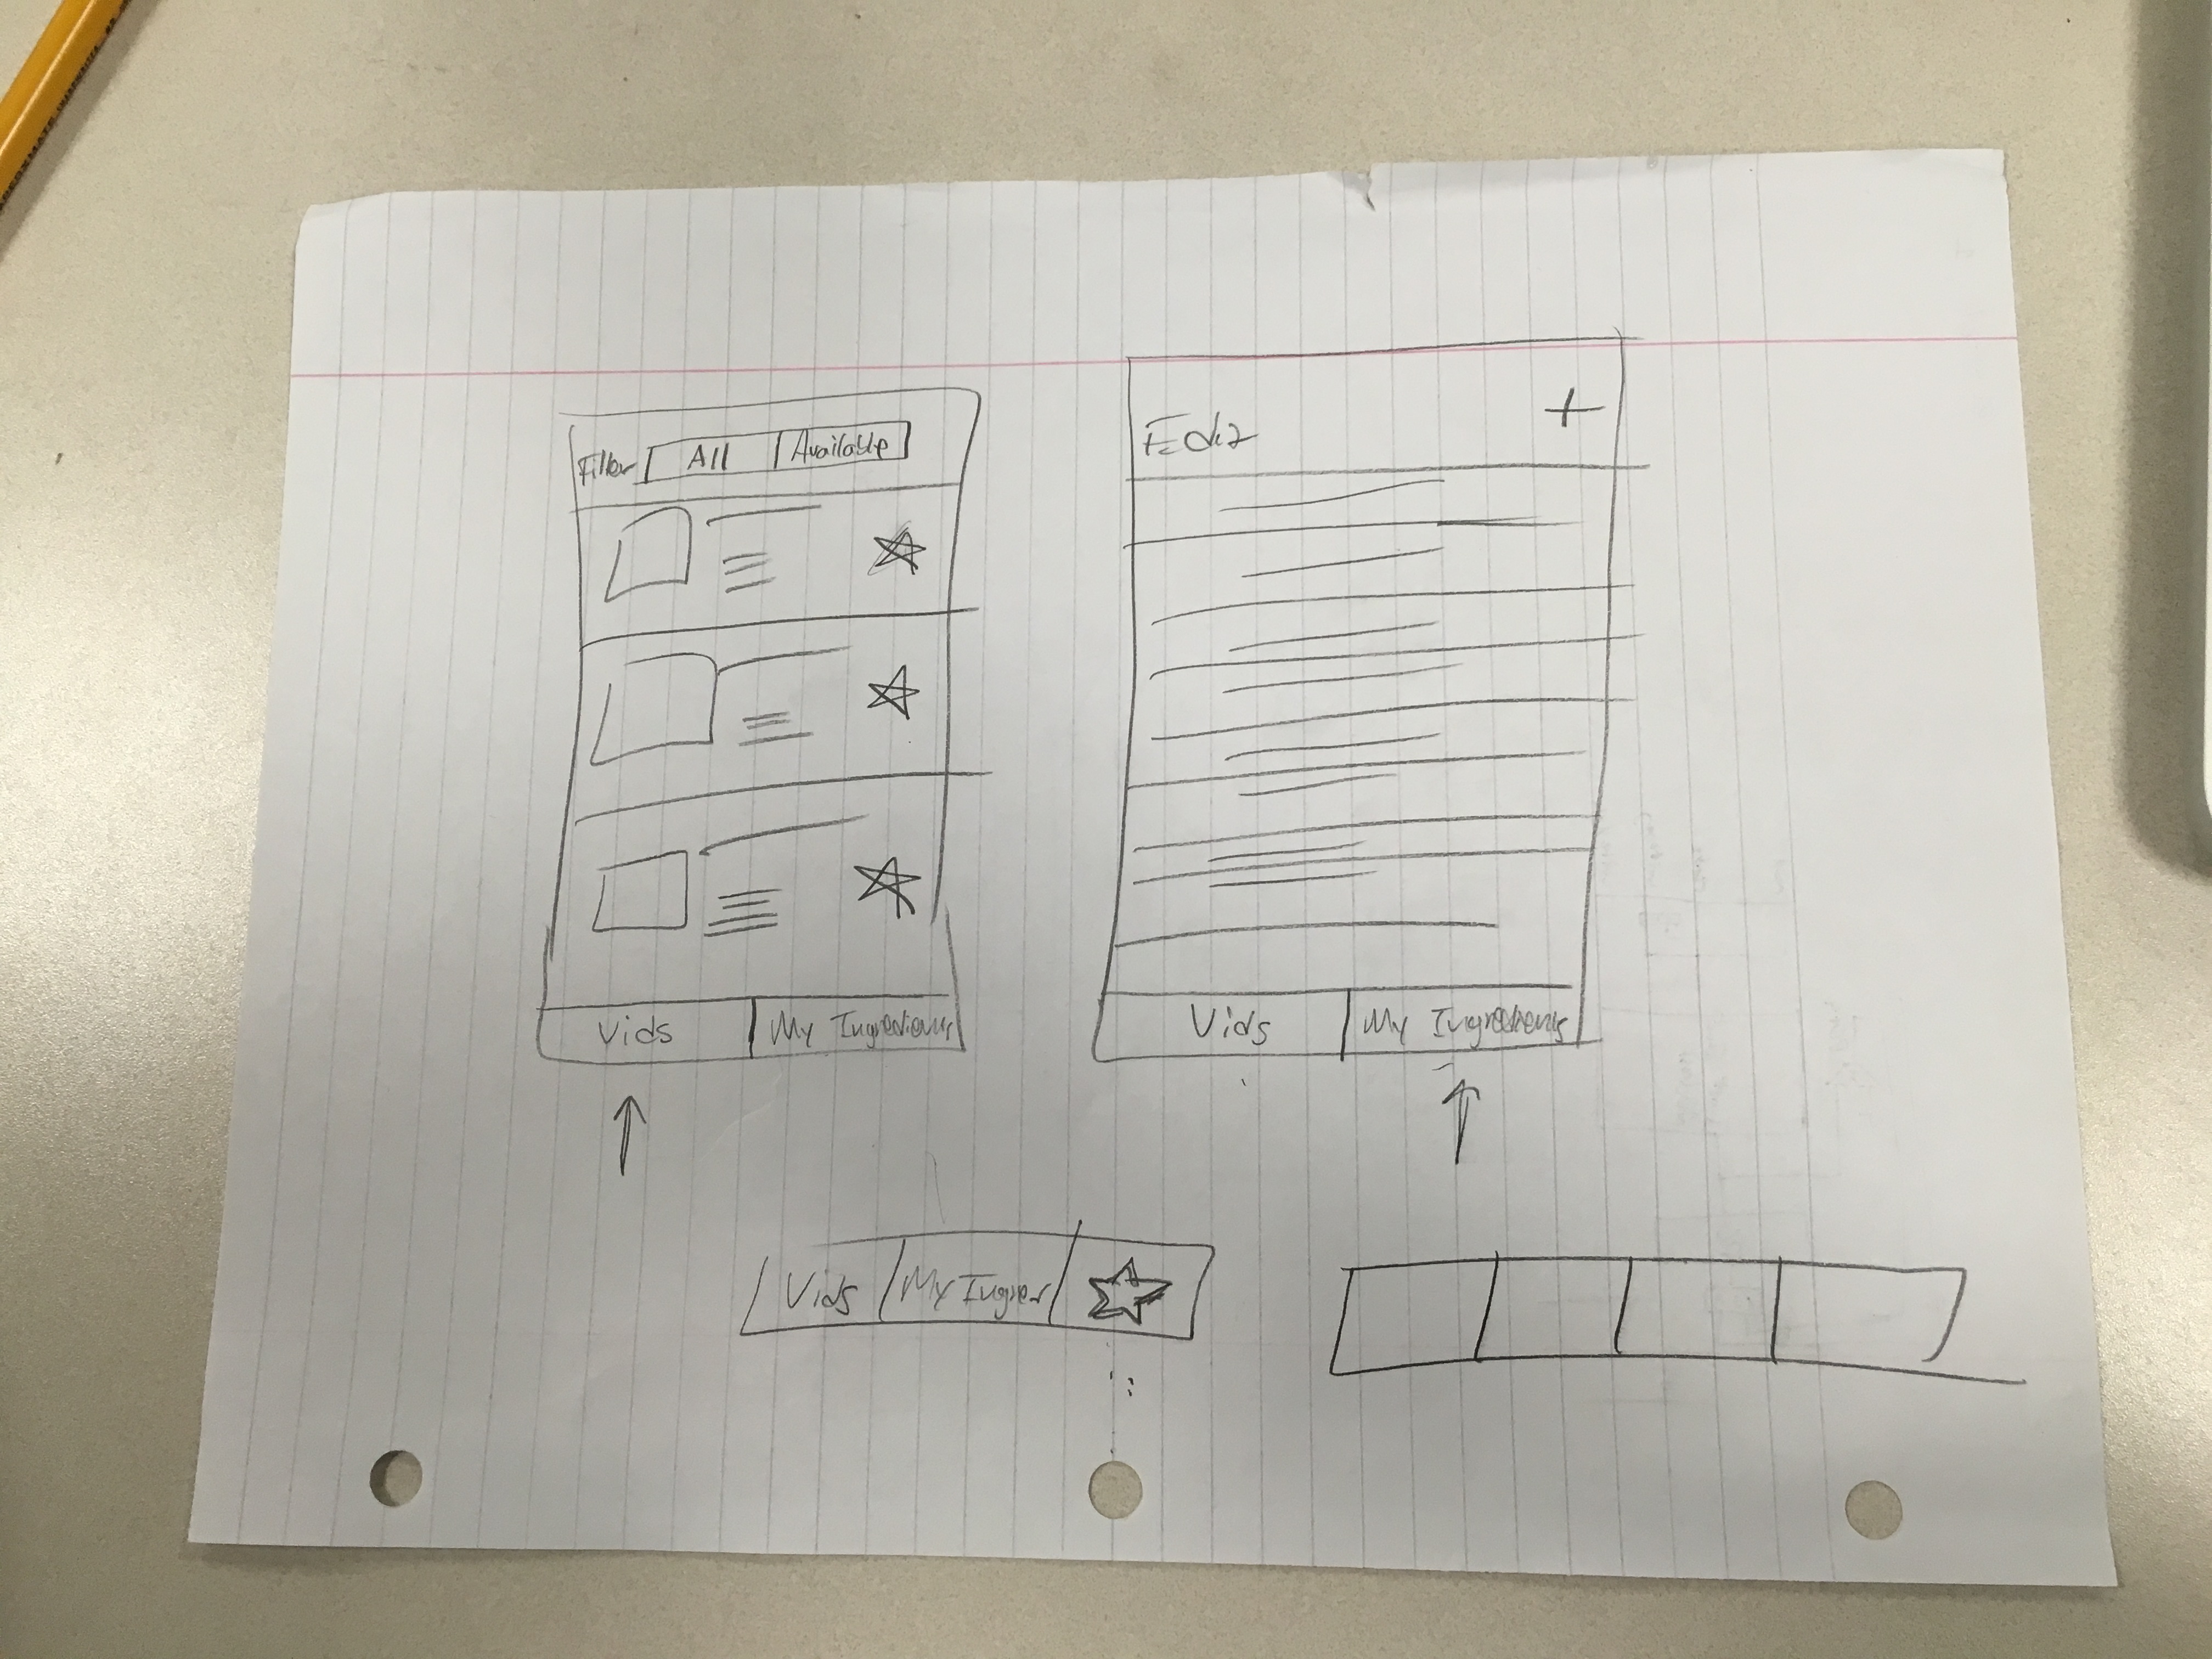 Filter All Available
Vids My Ingredients
Edit +
Vids My Ingredients
Vids My Ingrer